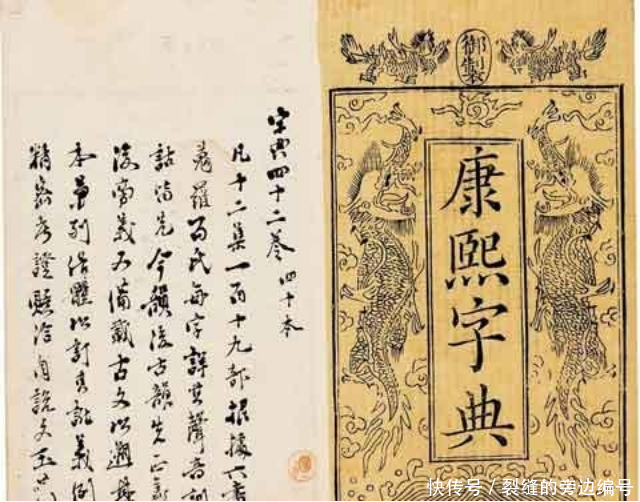 御製
康熙字典
字典四十二卷 四十本
凡十二集一百十九部根據六書
蒐羅百氏每字詳其聲音訓
詁皆先今韻後古韻先正義
後旁義又備載古文以遡其
本兼列俗體以訂其訛義例
精密考證賅洽自說文玉
快传号/裂缝的旁边编号